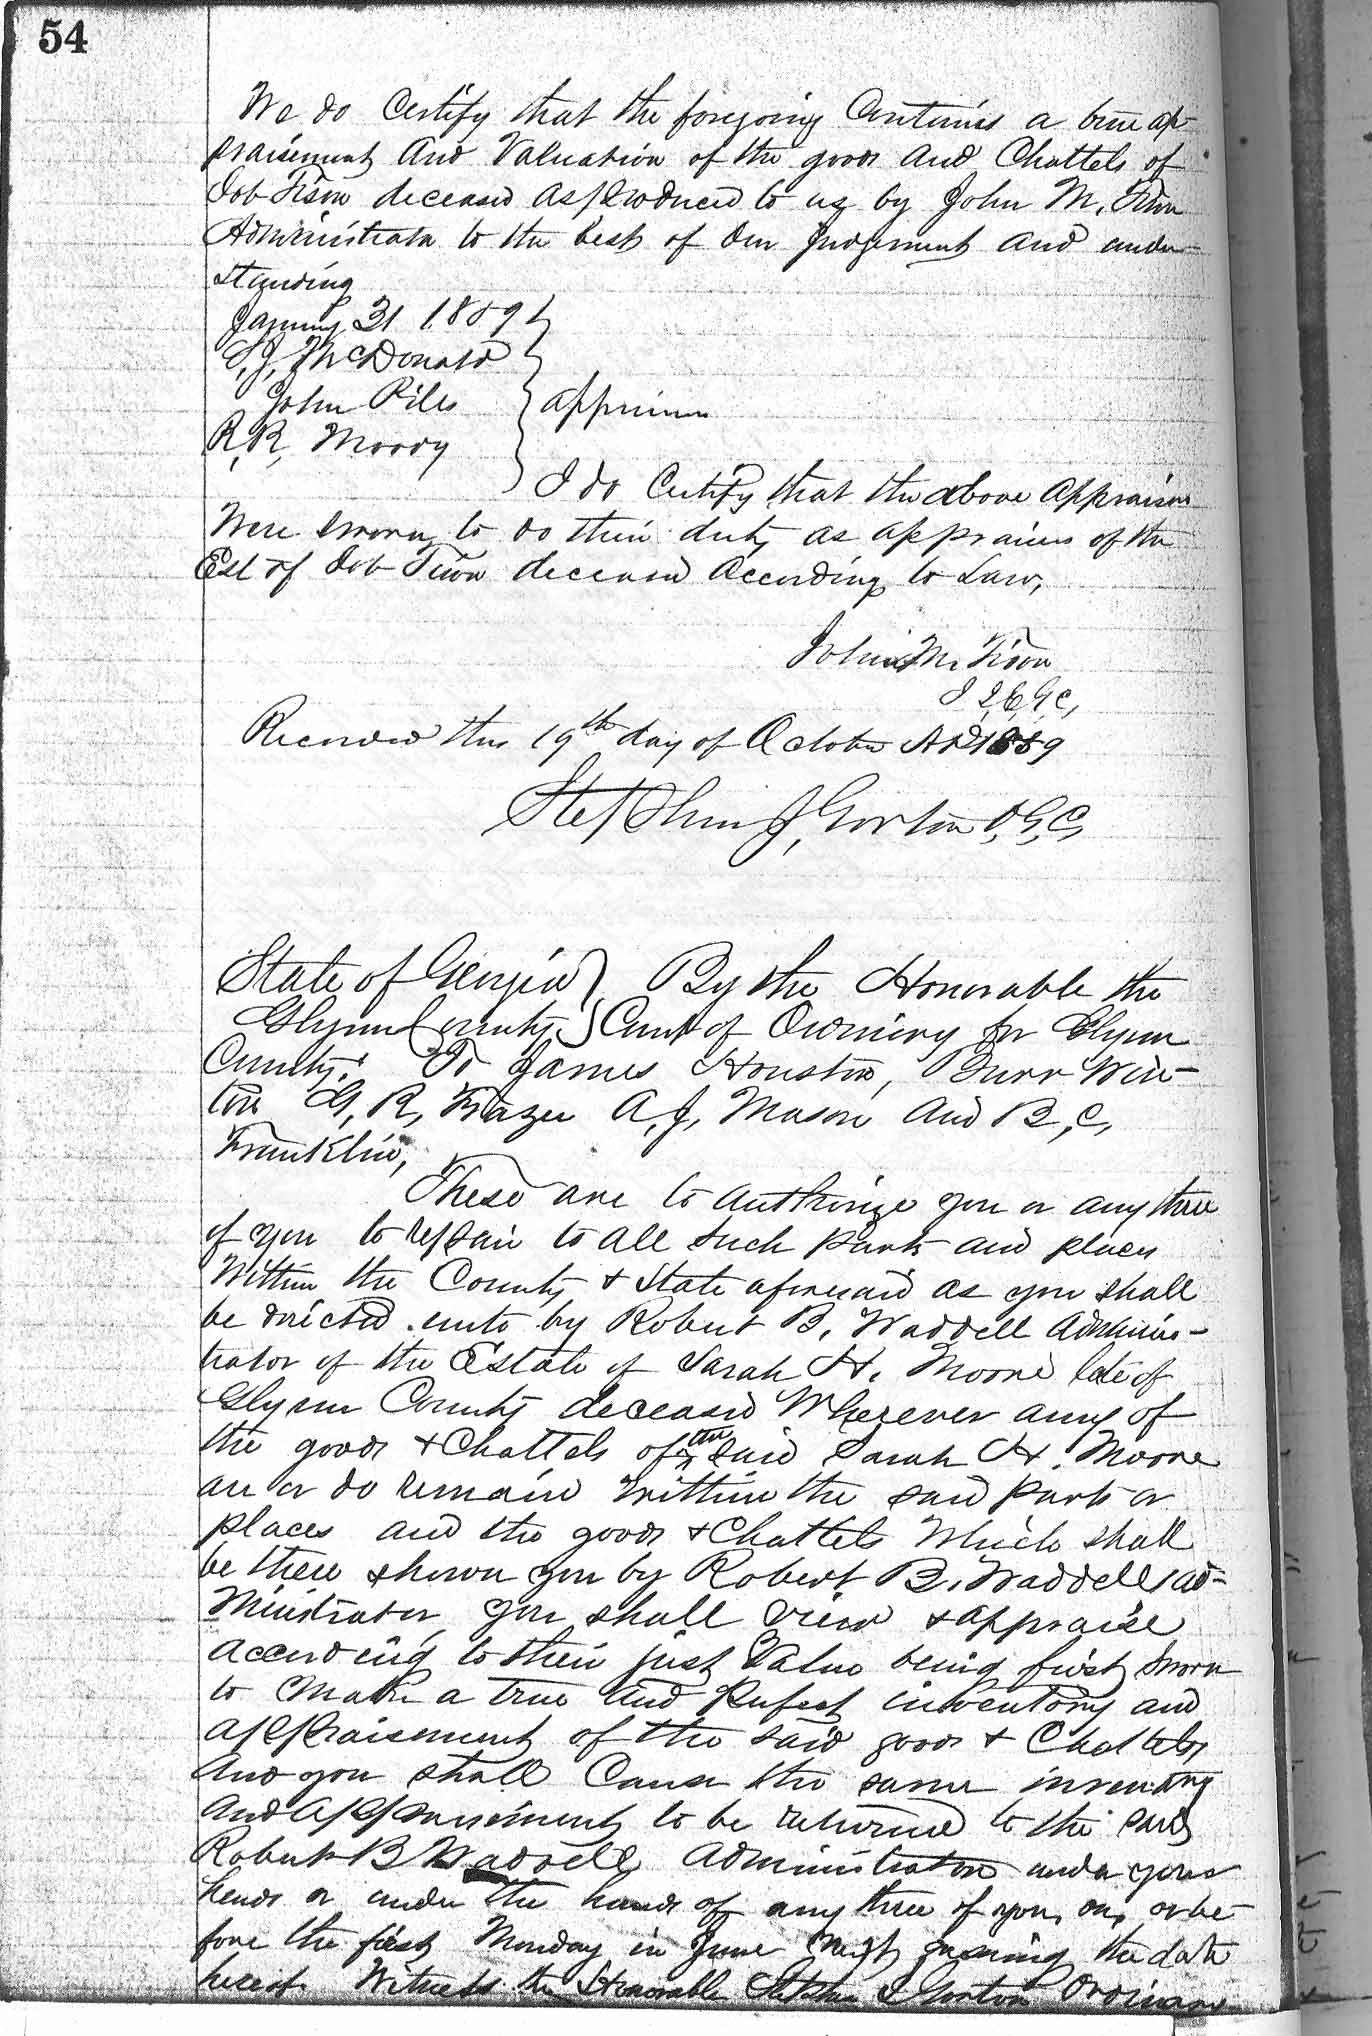 54
We do Certify that the foregoing Contains a true ap-
praisement and Valuation of the goods and Chattels of
Job Tison deceased as produced to us by John M. Tison
Administrator to the best of our judgement and under-
standing
January 31 1859
S, J, McDonald
John Piles
R, R, Moody
appraisers
I do Certify that the above Appraisers
Were sworn to do their duty as appraisers of the
Est of Job Tison deceased According to Law,
John M. Tison
J I, C, G, C,
Recorded this 19th day of October AD 1859
Stephen J, Gorton O, G, C,
State of Georgia } By the Honorable the
Glynn County } Court of Ordinary for Glynn
County: To James Houston, Burr Win-
ton G, R, Frazer A, J, Mason and B, C,
Franklin,
These are to authorize you or any three
of you to repair to all such parts and places
Within the County & State aforesaid as you shall
be directed unto by Robert B. Waddell Adminis-
trator of the Estate of Sarah H. Moore late of
Glynn County deceased Wherever any of
the goods & Chattels of the said Sarah H. Moore
are or do remain Within the said parts or
places and the goods & Chattels Which shall
be there shown you by Robert B. Waddell ad-
ministrator you shall view & appraise
according to their just Value being first sworn
to make a true and perfect inventory and
appraisement of the said goods & Chattels
And you shall Cause the same inventory
and appraisement to be returned to the said
Robert B Waddell Administrator under your
hands or under the hands of any three of you, on, or be-
fore the first Monday in June Next ensuing the date
hereof. Witness the Honorable Stephen J Gorton Ordinary